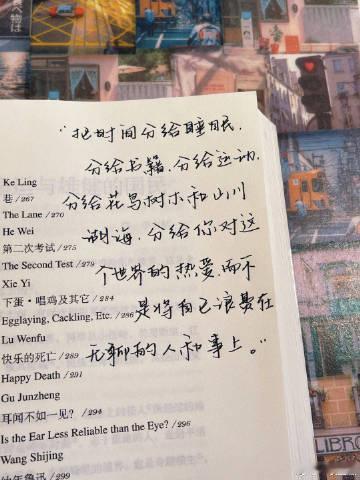 "把时间分给睡眠,
分给书籍,分给运动,
分给花鸟树木和山川
湖海,分给你对这
个世界的热爱,而不
是将自己浪费在
无聊的人和事上。"
Ke Ling
巷 /267
The Lane /270
He Wei
第二次考试 /275
The Second Test /279
Xie Yi
下蛋·唱鸡及其它 /284
Egglaying, Cackling, Etc. /286
Lu Wenfu
快乐的死亡 /289
Happy Death /291
Gu Junzheng
耳闻不如一见? /294
Is the Ear Less Reliable than the Eye? /296
Wang Shijing
幼年鲁迅 /299
LIBRO